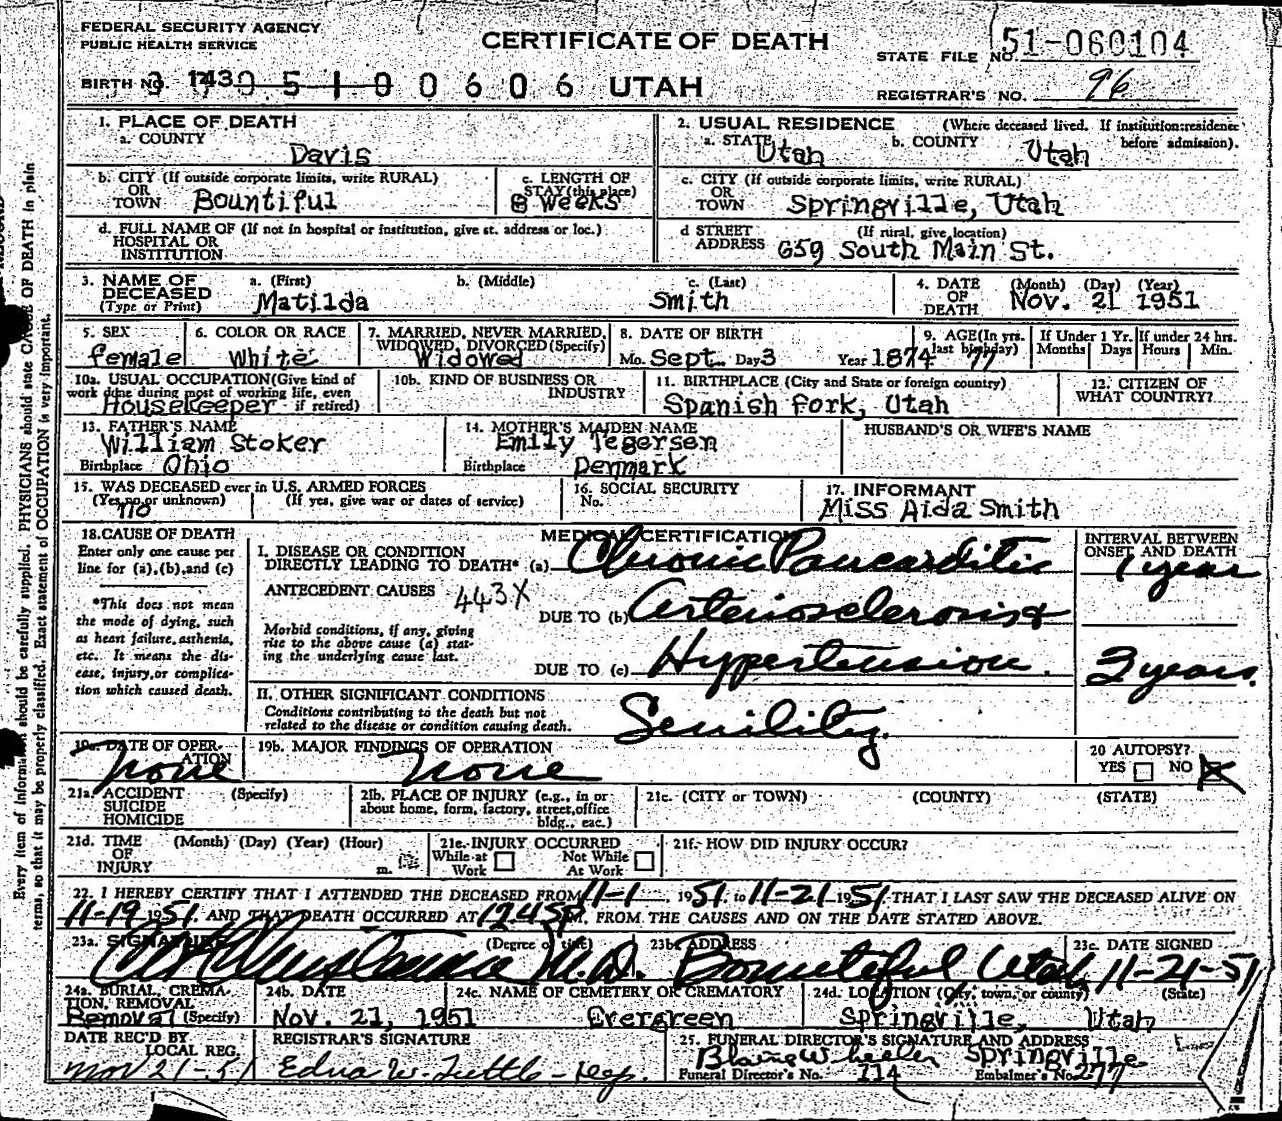 FEDERAL SECURITY AGENCY
PUBLIC HEALTH SERVICE
CERTIFICATE OF DEATH
STATE FILE NO. 51-060104
BIRTH NO. 0 0 6 0 6 UTAH
REGISTRAR'S NO. 96
1. PLACE OF DEATH
a. COUNTY
Davis
2. USUAL RESIDENCE (Where deceased lived. If institution: residence before admission).
a. STATE Utah b. COUNTY Utah
b. CITY (If outside corporate limits, write RURAL)
OR
TOWN Bountiful
c. LENGTH OF
STAY (this place)
8 weeks
c. CITY (If outside corporate limits, write RURAL)
OR
TOWN Springville, Utah
d. FULL NAME OF (If not in hospital or institution, give st. address or loc.)
HOSPITAL OR
INSTITUTION
d STREET (If rural, give location)
ADDRESS 659 South Main St.
3. NAME OF a. (First) b. (Middle) c. (Last)
DECEASED
(Type or Print) Matilda Smith
4. DATE (Month) (Day) (Year)
OF
DEATH Nov. 21 1951
5. SEX
female
6. COLOR OR RACE
White
7. MARRIED, NEVER MARRIED,
WIDOWED, DIVORCED (Specify)
Widowed
8. DATE OF BIRTH
Mo. Sept. Day 3 Year 1874
9. AGE (In yrs. last birthday) 77
If Under 1 Yr. Months Days
If under 24 hrs. Hours Min.
10a. USUAL OCCUPATION (Give kind of
work done during most of working life, even
if retired)
Housekeeper
10b. KIND OF BUSINESS OR
INDUSTRY
11. BIRTHPLACE (City and State or foreign country)
Spanish Fork, Utah
12. CITIZEN OF
WHAT COUNTRY?
13. FATHER'S NAME
William Stoker
Birthplace Ohio
14. MOTHER'S MAIDEN NAME
Emily Tegersen
Birthplace Denmark
HUSBAND'S OR WIFE'S NAME
15. WAS DECEASED ever in U.S. ARMED FORCES
(Yes, no or unknown) (If yes, give war or dates of service)
no
16. SOCIAL SECURITY
No.
17. INFORMANT
Miss Aida Smith
18. CAUSE OF DEATH
Enter only one cause per
line for (a), (b), and (c)
*This does not mean
the mode of dying, such
as heart failure, asthenia,
etc. It means the dis-
ease, injury, or complica-
tion which caused death.
MEDICAL CERTIFICATION
INTERVAL BETWEEN
ONSET AND DEATH
I. DISEASE OR CONDITION
DIRECTLY LEADING TO DEATH* (a) Chronic Pancarditis 1 year
ANTECEDENT CAUSES 443X
DUE TO (b) Arteriosclerosis &
Morbid conditions, if any, giving
rise to the above cause (a) stat-
ing the underlying cause last.
DUE TO (c) Hypertension. years.
II. OTHER SIGNIFICANT CONDITIONS
Conditions contributing to the death but not
related to the disease or condition causing death.
Senility.
19a. DATE OF OPER-
ATION
none
19b. MAJOR FINDINGS OF OPERATION
none
20 AUTOPSY?
YES NO X
21a. ACCIDENT (Specify)
SUICIDE
HOMICIDE
21b. PLACE OF INJURY (e.g., in or
about home, form, factory, street, office
bldg., eac.)
21c. (CITY or TOWN) (COUNTY) (STATE)
21d. TIME (Month) (Day) (Year) (Hour)
OF
INJURY m.
21e. INJURY OCCURRED
While at Work Not While At Work
21f. HOW DID INJURY OCCUR?
22. I HEREBY CERTIFY THAT I ATTENDED THE DECEASED FROM 11-1, 1951 to 11-21 1951 THAT I LAST SAW THE DECEASED ALIVE ON
11-19 1951 AND THAT DEATH OCCURRED AT 1245P M. FROM THE CAUSES AND ON THE DATE STATED ABOVE.
23a. SIGNATURE (Degree or title)
M.D.
23b. ADDRESS
Bountiful, Utah
23c. DATE SIGNED
11-21-51
24a. BURIAL, CREMA-
TION, REMOVAL
Removal (Specify)
24b. DATE
Nov. 21, 1951
24c. NAME OF CEMETERY OR CREMATORY
Evergreen
24d. LOCATION (City, town, or county) (State)
Springville, Utah
DATE REC'D BY
LOCAL REG.
Nov 21-51
REGISTRAR'S SIGNATURE
Edna W. Tuttle - Dep.
25. FUNERAL DIRECTOR'S SIGNATURE AND ADDRESS
Blaine Wheeler Springville
Funeral Director's No. 114 Embalmer's No. 277
Every item of information should be carefully supplied. PHYSICIANS should state CAUSE OF DEATH in plain
terms, so that it may be properly classified. Exact statement of OCCUPATION is very important.